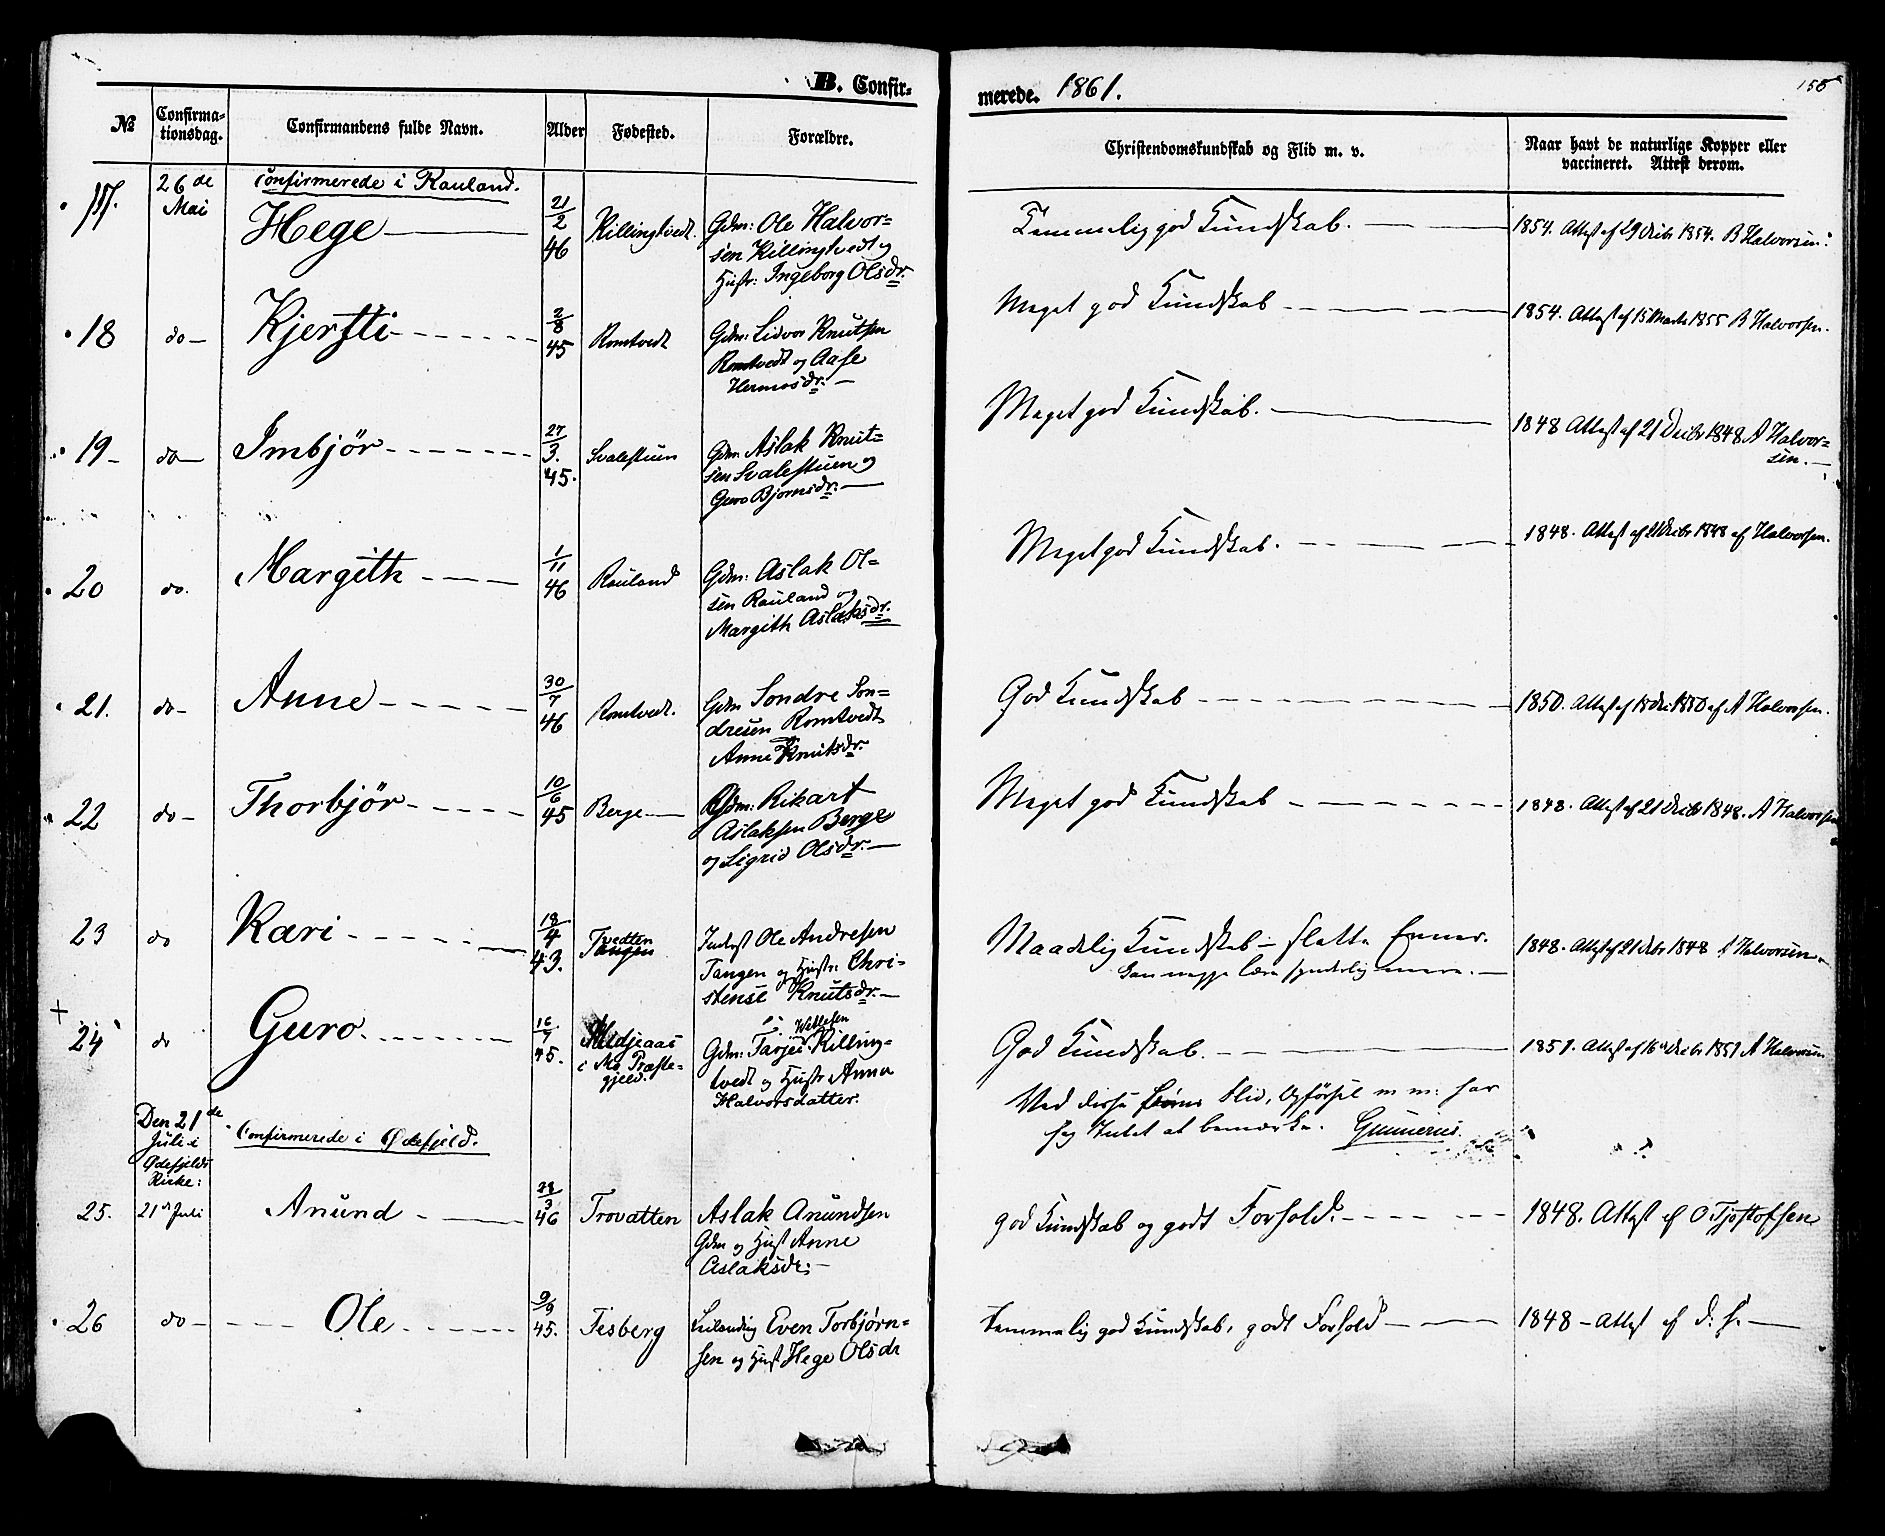 B. Confir-
merede. 1861.
№ Confirma-tionsdag. Confirmandens fulde Navn. Alder Fødested. Forældre. Christendomskundskab og Flid m. v. Naar havt de naturlige Kopper eller vaccineret. Attest derom.
26de Mai Confirmerede i Rauland.
17. Hege 21/2 46 Killingtvedt. Gdm: Ole Halvor-
sen Killingtvedt og
Hustr: Ingeborg Olsdr.
Temmelig god Kundskab.
1854. Attest af 29 Decbr 1854. B Halvorsen.
18 do Kjersti 2/8 45 Romtvedt Gdm: Lidvor Knutsen
Romtvedt og Aase
Hermosdr.
Meget god Kundskab
1854. Attest af 15 Marts 1855 B Halvorsen.
19 do Imbjør 27/3. 45. Svalestuen Gdm: Aslak Knut-
sen Svalestuen og
Guro Bjornsdr.
Meget god Kundskab.
1848 Attest af 21 Decbr 1848 A Halvor-
sen.
20 do. Margith 1/11 46 Rauland Gdm: Aslak Ol-
sen Rauland og
Margith Aslaksdr.
Meget god Kundskab.
1848. Attest af 21 Decbr 1848 af Halvorsen.
21. do Anne 30/7 46 Romtvedt. Gdm Sondre Son-
dresen Romtvedt
Anne Knutsdr.
God Kundskab
1850. Attest af 18 Dec 1850 af A Halvorsen.
22 do Thorbjør 10/6 45 Berge Gdm: Rikart
Aslaksen Berge
og Sigrid Olsdr.
Meget god Kundskab
1848. Attest af 21 Decbr 1848. A Halvorsen
23 do Kari 18/4 43. Tvedten
Tangen
Inderst Ole Andresen
Tangen og Hustr: Chri-
stense Knutsdr.
Maadelig Kundskab – slette Evner.
1848. Attest af 21 Dcbr 1848 A Halvorsen
24 do Guro 16/7 45. i Mo Præste-
gjeld.
Gdm: Tarjei Vetlesen Killing-
tvedt og Hustr Anne
Halvorsdatter.
God Kundskab.
1851. Attest af 16 Decbr 1851 A Halvorsen
Ved disse Børns Flid, Opførsel m m: har
jeg Intet at bemærke. Gunnerius.
Den 21de
Juli i
Ødefjelds
Kirke:
Confirmerede i Ødefjeld.
25. 21de Juli Anund 28/3 46 Trovatten Aslak Anundsen
Gdm og Hust Anne
Aslaksdr.
god Kundskab og godt Forhold.
1848. Attest af O Tjostofsen
26 do Ole 9/9 45. Tesberg Leilending Even Torbjørn-
sen og Hust Hege Olsdr
temmelig god Kundskab, godt Forhold
1848 – Attest af d. s.